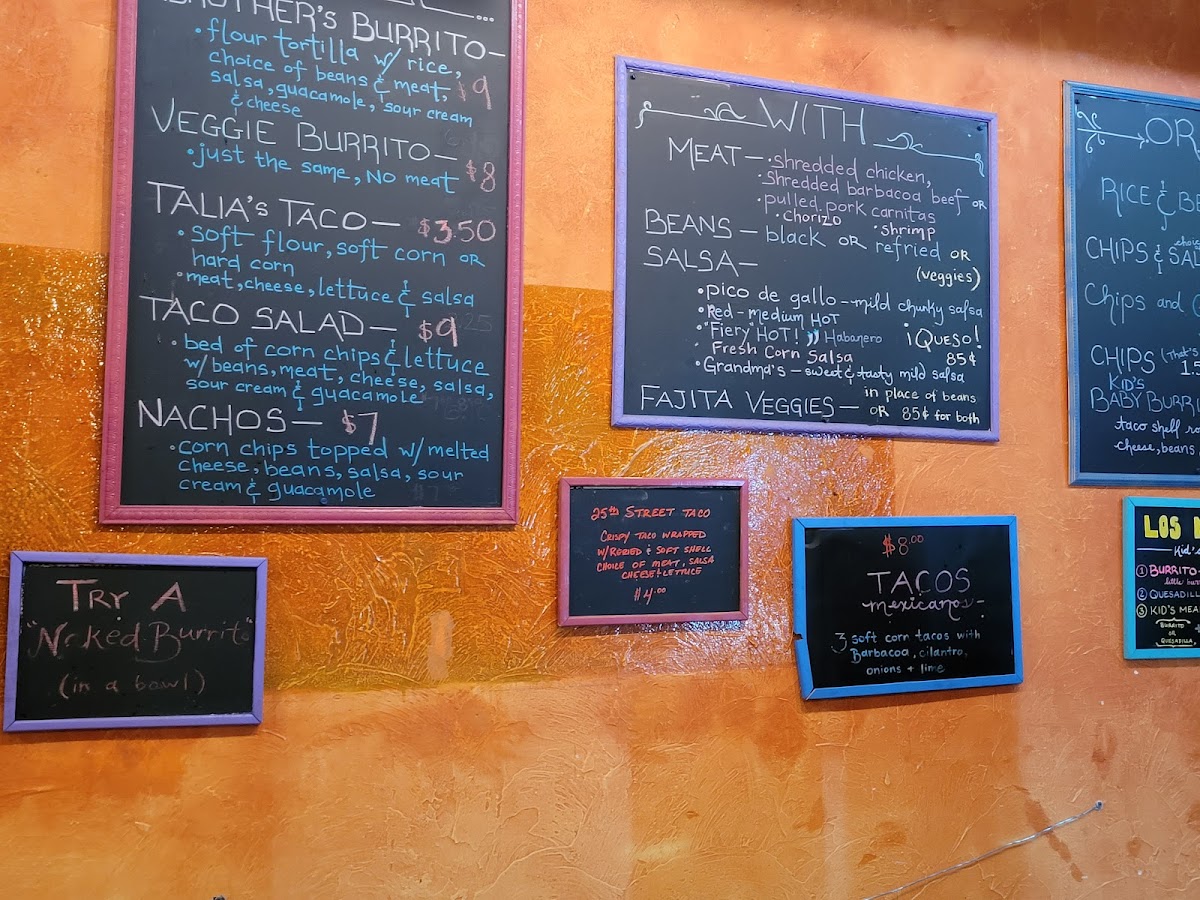 BROTHER'S BURRITO—
•flour tortilla w/ rice,
choice of beans & meat, $9
salsa, guacamole, sour cream
& cheese
VEGGIE BURRITO—
•just the same, NO meat $8
TALIA'S TACO— $3.50
•soft flour, soft corn OR
hard corn
•meat, cheese, lettuce & salsa
TACO SALAD— $9
•bed of corn chips & lettuce
w/beans, meat, cheese, salsa,
sour cream & guacamole
NACHOS— $7
•corn chips topped w/melted
cheese, beans, salsa, sour
cream & guacamole
WITH
MEAT—•shredded chicken,
•shredded barbacoa beef OR
•pulled pork carnitas
•chorizo •shrimp
BEANS—black OR refried OR
(veggies)
SALSA—
•pico de gallo--mild chunky salsa
•Red-medium HOT
•"Fiery" HOT! Habanero
Fresh Corn Salsa
¡QUESO!
85¢
•Grandma's—sweet & tasty mild salsa
FAJITA VEGGIES— in place of beans
OR 85¢ for both
OR
RICE & BE
choic
CHIPS & SAL
Chips and
CHIPS (That's
1.5
KID'S
BABY BURRI
taco shell ro
cheese, beans
TRY A
"Naked Burrito"
(in a bowl)
25th STREET TACO
CRISPY TACO WRAPPED
W/REFRIED & SOFT SHELL
CHOICE OF MEAT, SALSA
CHEESE & LETTUCE
$4.00
$8.00
TACOS
mexicanos-
3 soft corn tacos with
Barbacoa, cilantro,
onions + lime
LOS
Kid's
① BURRITO-
little burr
② QUESADILL
③ KID'S MEA
BURRITO
OR
QUESADILLA,